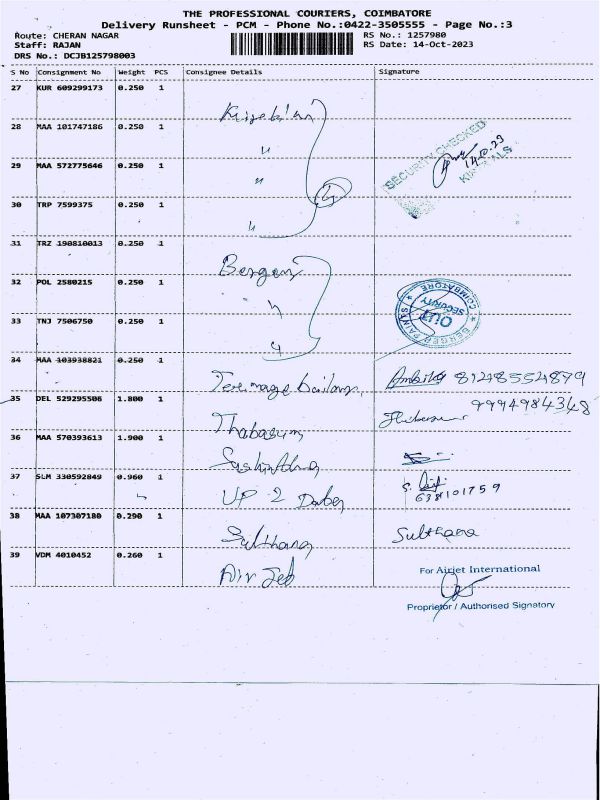 THE PROFESSIONAL COURIERS, COIMBATORE
Delivery Runsheet - PCM - Phone No.:0422-3505555 - Page No.:3
Route: CHERAN NAGAR
RS No.: 1257980
Staff: RAJAN
RS Date: 14-Oct-2023
DRS No.: DCJB125798003
S No Consignment No Weight PCS Consignee Details Signature
27 KUR 609299173 0.250 1
28 MAA 101747186 0.250 1
SECURITY CHECKED
14.10.23
29 MAA 572775646 0.250 1
30 TRP 7599375 0.250 1
31 TRZ 190810013 0.250 1
Bergen
32 POL 2580215 0.250 1
COIMBATORE
SECURITY
OUT
33 TNJ 7506750 0.250 1
34 MAA 103938821 0.250 1
8148554879
35 DEL 529295506 1.800 1
9994984348
Thabasum
36 MAA 570393613 1.900 1
37 SLM 330592849 0.960 1
UP 2
38 MAA 107307180 0.290 1
Sulthana Sulthana
39 VDM 4010452 0.260 1
Air Jet
For Airjet International
Proprietor / Authorised Signatory